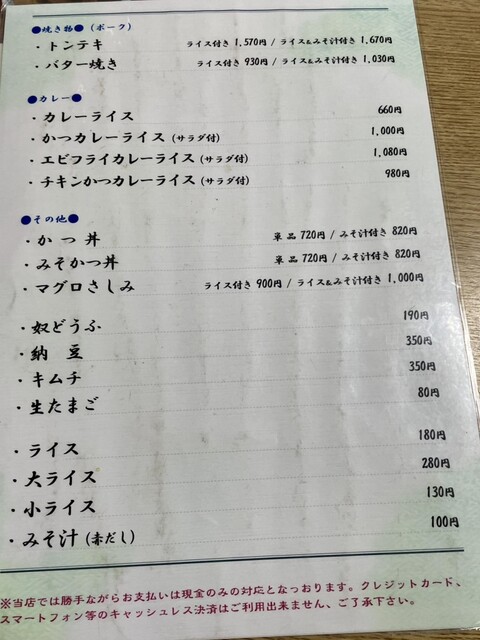 ●焼き物●（ポーク）
・トンテキ ライス付き 1,570円 / ライス&みそ汁付き 1,670円
・バター焼き ライス付き 930円 / ライス&みそ汁付き 1,030円
●カレー●
・カレーライス 660円
・かつカレーライス（サラダ付） 1,000円
・エビフライカレーライス（サラダ付） 1,080円
・チキンかつカレーライス（サラダ付） 980円
●その他●
・かつ丼 単品 720円 / みそ汁付き 820円
・みそかつ丼 単品 720円 / みそ汁付き 820円
・マグロさしみ ライス付き 900円 / ライス&みそ汁付き 1,000円
・奴どうふ 190円
・納豆 350円
・キムチ 350円
・生たまご 80円
・ライス 180円
・大ライス 280円
・小ライス 130円
・みそ汁（赤だし） 100円
※当店では勝手ながらお支払いは現金のみの対応となっおります。クレジットカード、
スマートフォン等のキャッシュレス決済はご利用出来ません、ご了承下さい。